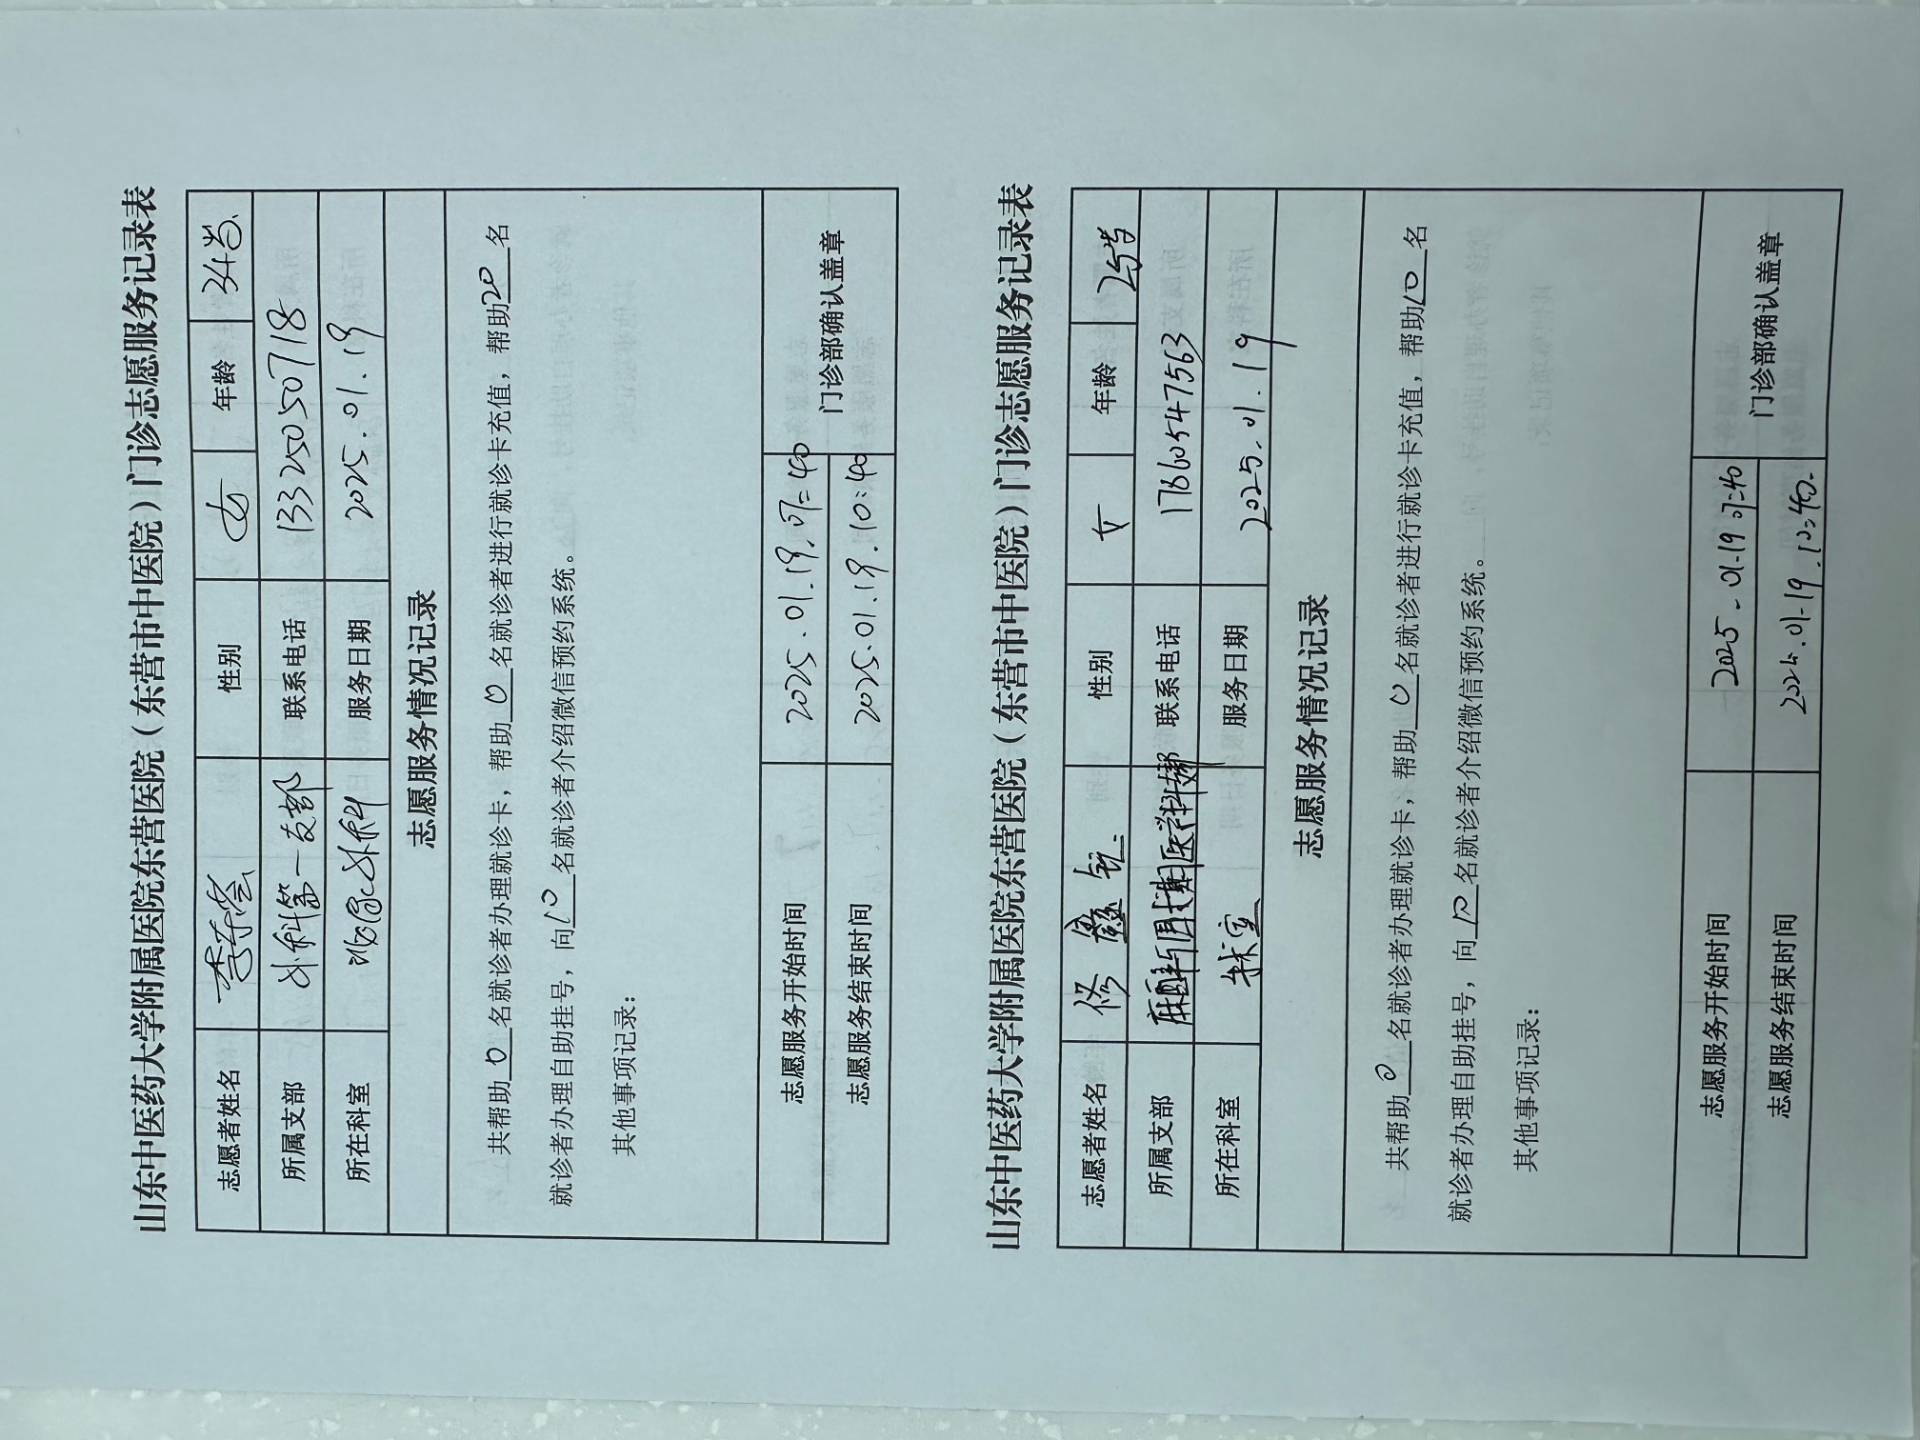 山东中医药大学附属医院东营医院（东营市中医院）门诊志愿服务记录表
志愿者姓名 李东芸 性别 女 年龄 34岁
所属支部 外科第一支部 联系电话 13325050718
所在科室 外科 服务日期 2025.01.19
志愿服务情况记录
共帮助 0 名就诊者办理就诊卡，帮助 0 名就诊者进行就诊卡充值，帮助 20 名
就诊者办理自助挂号，向 10 名就诊者介绍微信预约系统。
其他事项记录：
志愿服务开始时间 2025.01.19.07:40 门诊部确认盖章
志愿服务结束时间 2025.01.19.10:40
山东中医药大学附属医院东营医院（东营市中医院）门诊志愿服务记录表
志愿者姓名 修鑫 性别 女 年龄 25岁
所属支部 麻醉与围术期医学科 联系电话 17860547563
所在科室 手术室 服务日期 2025.01.19
志愿服务情况记录
共帮助 0 名就诊者办理就诊卡，帮助 0 名就诊者进行就诊卡充值，帮助 10 名
就诊者办理自助挂号，向 10 名就诊者介绍微信预约系统。
其他事项记录：
志愿服务开始时间 2025-01-19 07:40 门诊部确认盖章
志愿服务结束时间 2025.01-19.10:40.